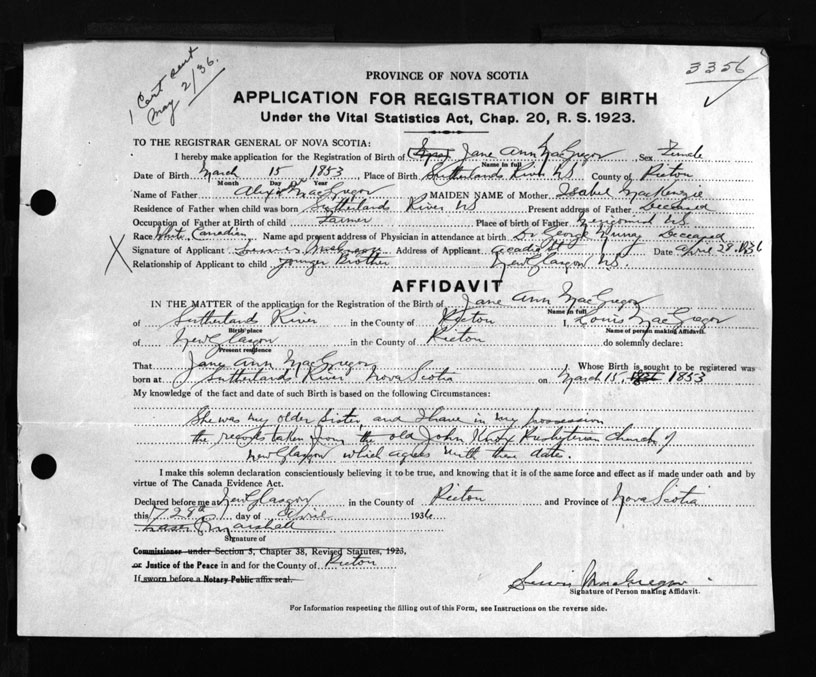 1 Cert sent
May 2/36.
3356
PROVINCE OF NOVA SCOTIA
APPLICATION FOR REGISTRATION OF BIRTH
Under the Vital Statistics Act, Chap. 20, R. S. 1923.
TO THE REGISTRAR GENERAL OF NOVA SCOTIA:
I hereby make application for the Registration of Birth of Jane Ann MacGregor Sex Female
Name in full
Date of Birth March 15 1853 Place of Birth Sutherlands River NS County of Pictou
Month Day Year
Name of Father Alex MacGregor MAIDEN NAME of Mother Isabel MacKenzie
Residence of Father when child was born Sutherlands River NS Present address of Father Deceased
Occupation of Father at Birth of child Farmer Place of birth of Father Merigomish NS
Race White Canadian Name and present address of Physician in attendance at birth Dr George Murray Deceased
Signature of Applicant Address of Applicant Date April 28 1936
Relationship of Applicant to child younger Brother New Glasgow NS.
AFFIDAVIT
IN THE MATTER of the application for the Registration of the Birth of Jane Ann MacGregor
Name in full
of Sutherlands River in the County of Pictou I, Louis MacGregor
Birth place Name of person making Affidavit
of New Glasgow in the County of Pictou do solemnly declare:
Present residence
That Jane Ann MacGregor Whose Birth is sought to be registered was
born at Sutherlands River Nova Scotia on March 15, 1853
My knowledge of the fact and date of such Birth is based on the following Circumstances:
She was my older Sister and I have in my possession
the records taken from the old John Knox Presbyterian Church of
New Glasgow which agrees with then date.
I make this solemn declaration conscientiously believing it to be true, and knowing that it is of the same force and effect as if made under oath and by
virtue of The Canada Evidence Act.
Declared before me at New Glasgow in the County of Pictou and Province of Nova Scotia
this 29th day of April 1936
Marshall
Signature of
Commissioner under Section 5, Chapter 38, Revised Statutes, 1923,
or Justice of the Peace in and for the County of Pictou
If sworn before a Notary Public affix seal.
MacGregor
Signature of Person making Affidavit.
For Information respecting the filling out of this Form, see Instructions on the reverse side.